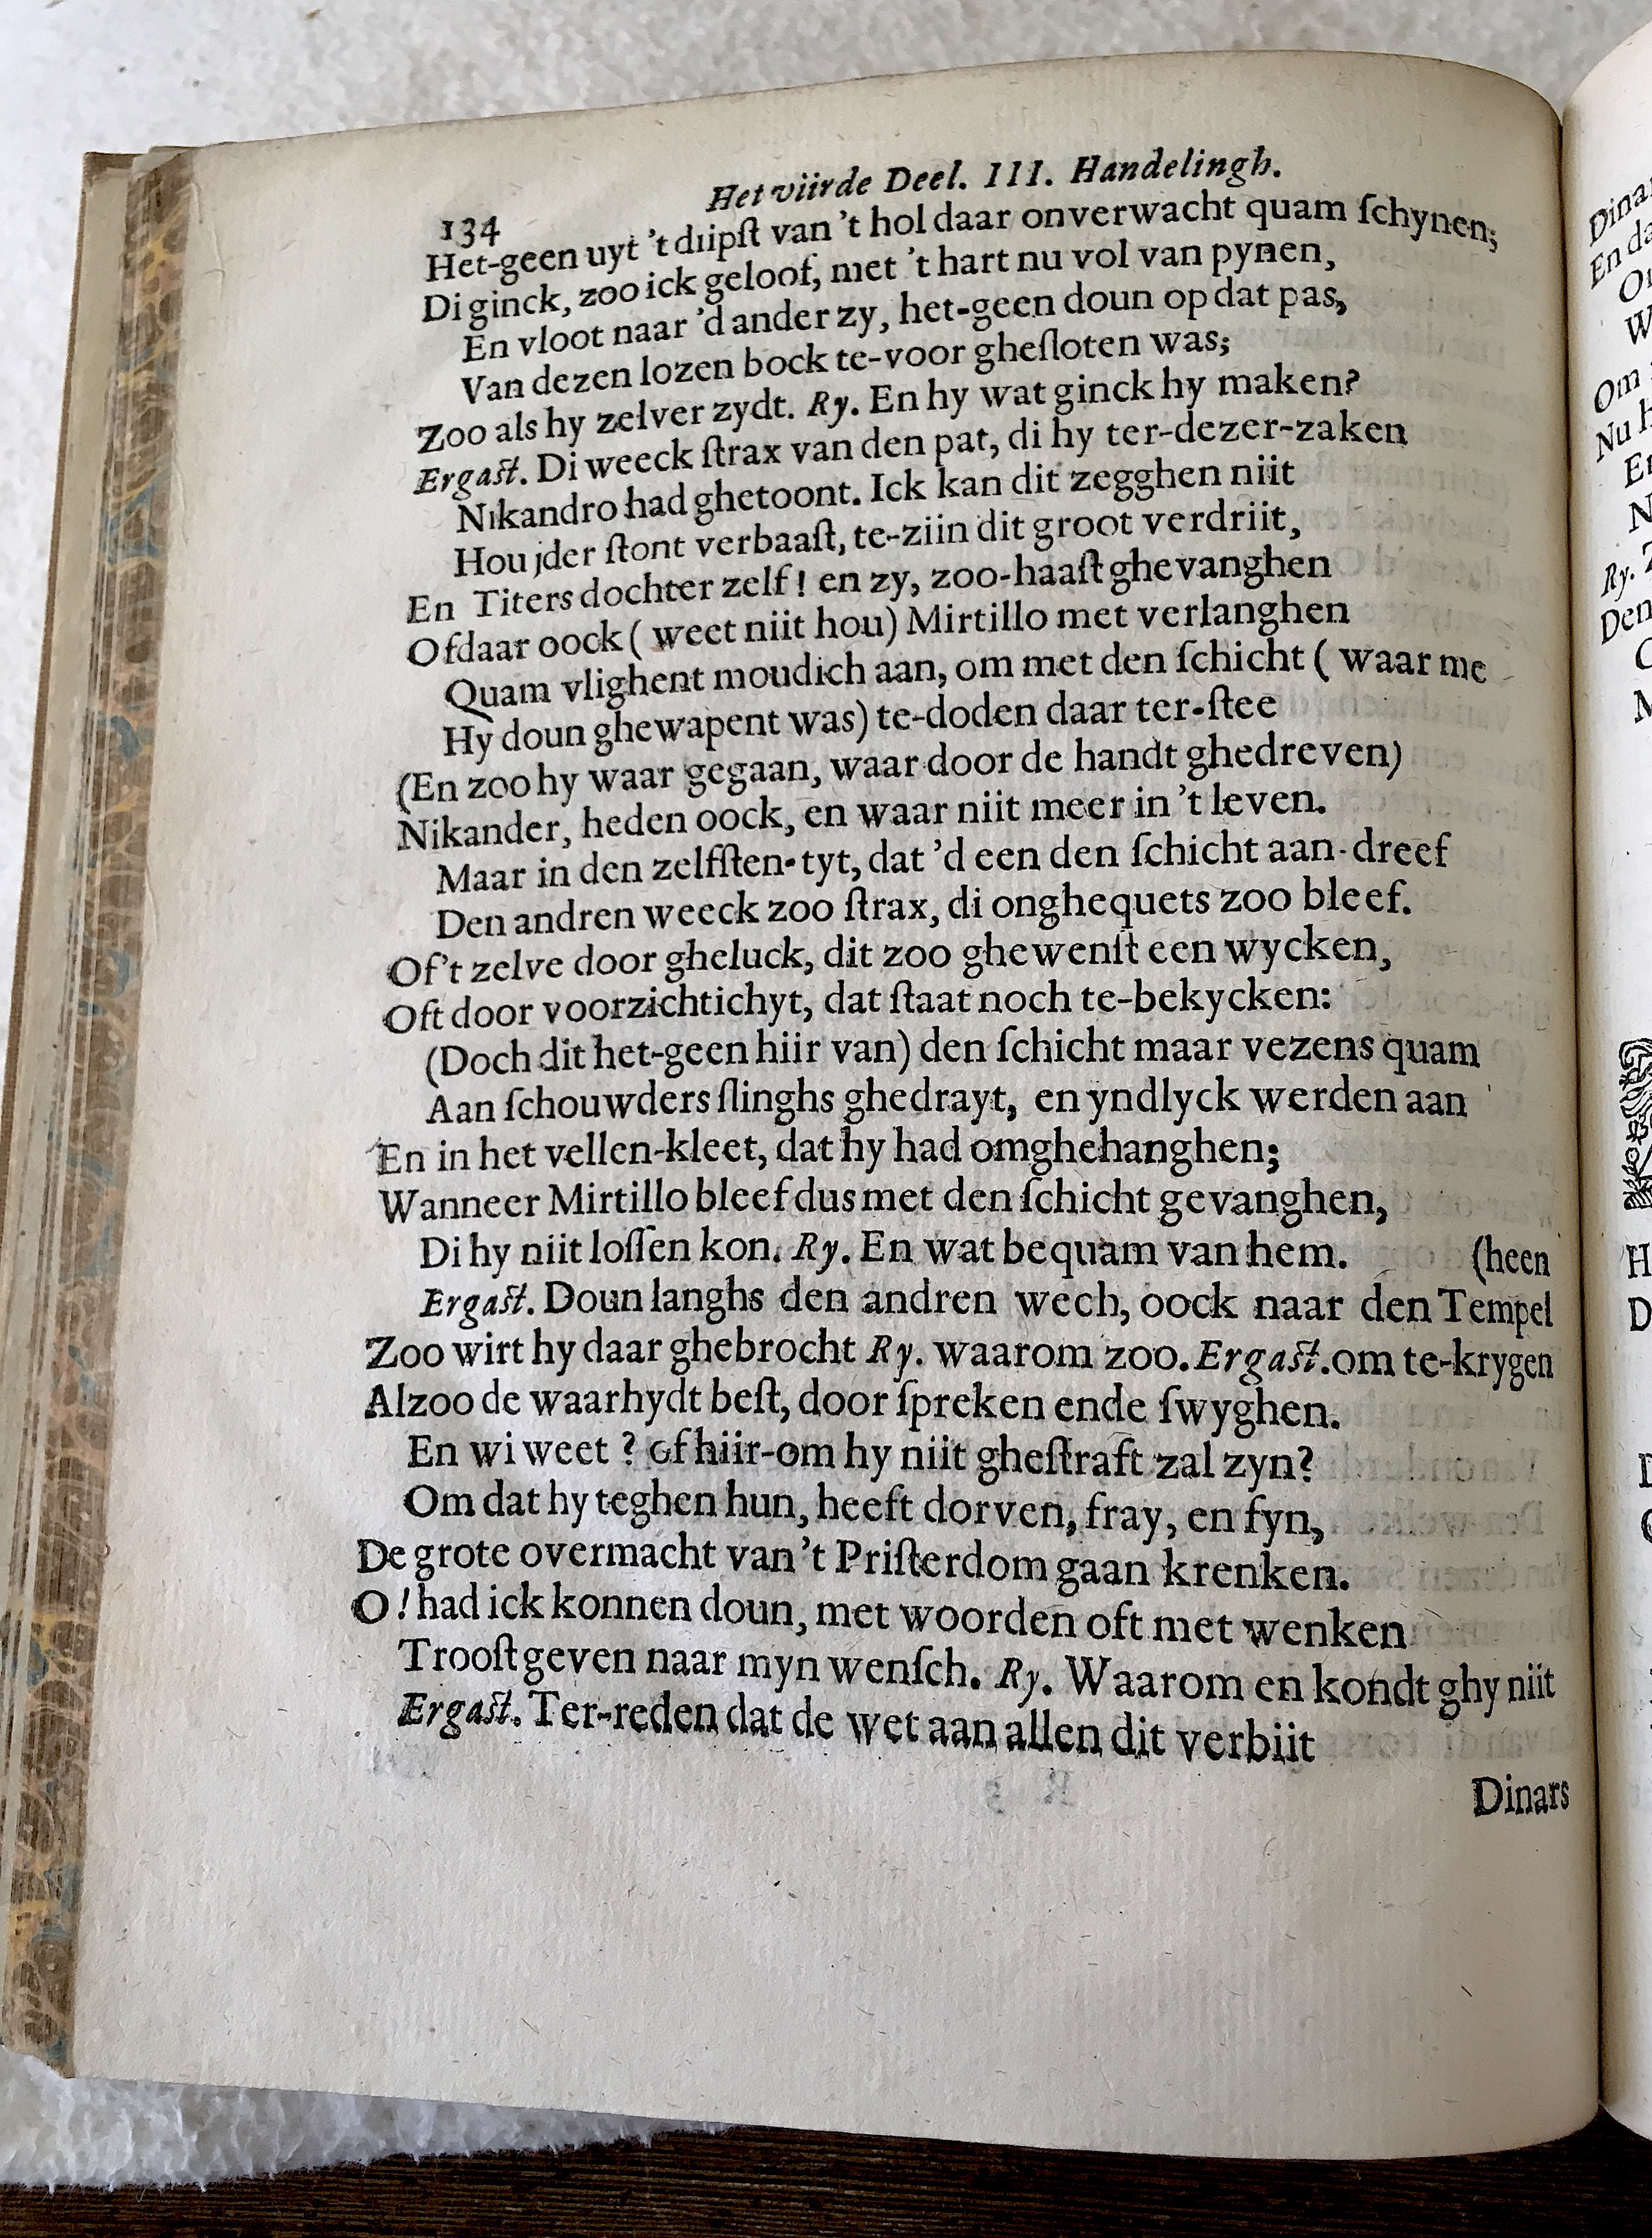 134 Het viirde Deel. III. Handelingh.
Het-geen uyt 't diipſt van 't hol daar onverwacht quam ſchynen;
Di ginck, zoo ick geloof, met 't hart nu vol van pynen,
En vloot naar 'd ander zy, het-geen doun op dat pas,
Van dezen lozen bock te-voor gheſloten was;
Zoo als hy zelver zydt. Ry. En hy wat ginck hy maken?
Ergaſt. Di weeck ſtrax van den pat, di hy ter-dezer-zaken
Nikandro had ghetoont. Ick kan dit zegghen niit
Hou jder ſtont verbaaſt, te-ziin dit groot verdriit,
En Titers dochter zelf! en zy, zoo-haaſt ghevanghen
Ofdaar oock ( weet niit hou) Mirtillo met verlanghen
Quam vlighent moudich aan, om met den ſchicht ( waar me
Hy doun ghewapent was) te-doden daar ter-ſtee
(En zoo hy waar gegaan, waar door de handt ghedreven)
Nikander, heden oock, en waar niit meer in 't leven.
Maar in den zelfſten-tyt, dat 'd een den ſchicht aan-dreef
Den andren weeck zoo ſtrax, di onghequets zoo bleef.
Of't zelve door gheluck, dit zoo ghewenſt een wycken,
Oft door voorzichtichyt, dat ſtaat noch te-bekycken:
(Doch dit het-geen hiir van) den ſchicht maar vezens quam
Aan ſchouwders ſlinghs ghedrayt, en yndlyck werden aan
En in het vellen-kleet, dat hy had omghehanghen;
Wanneer Mirtillo bleef dus met den ſchicht gevanghen,
Di hy niit loſſen kon. Ry. En wat bequam van hem. (heen
Ergaſt. Doun langhs den andren wech, oock naar den Tempel
Zoo wirt hy daar ghebrocht Ry. waarom zoo. Ergaſt. om te-krygen
Alzoo de waarhydt beſt, door ſpreken ende ſwyghen.
En wi weet ? of hiir-om hy niit gheſtraft zal zyn?
Om dat hy teghen hun, heeft dorven, fray, en fyn,
De grote overmacht van 't Priſterdom gaan krenken.
O! had ick konnen doun, met woorden oft met wenken
Trooſt geven naar myn wenſch. Ry. Waarom en kondt ghy niit
Ergaſt. Ter-reden dat de wet aan allen dit verbiit
Dinars